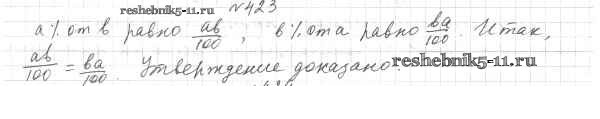 reshebnik5-11.ru №423
a% от b равно ab/100, b% от a равно ba/100. Итак,
ab/100 = ba/100. Утверждение доказано. reshebnik5-11.ru